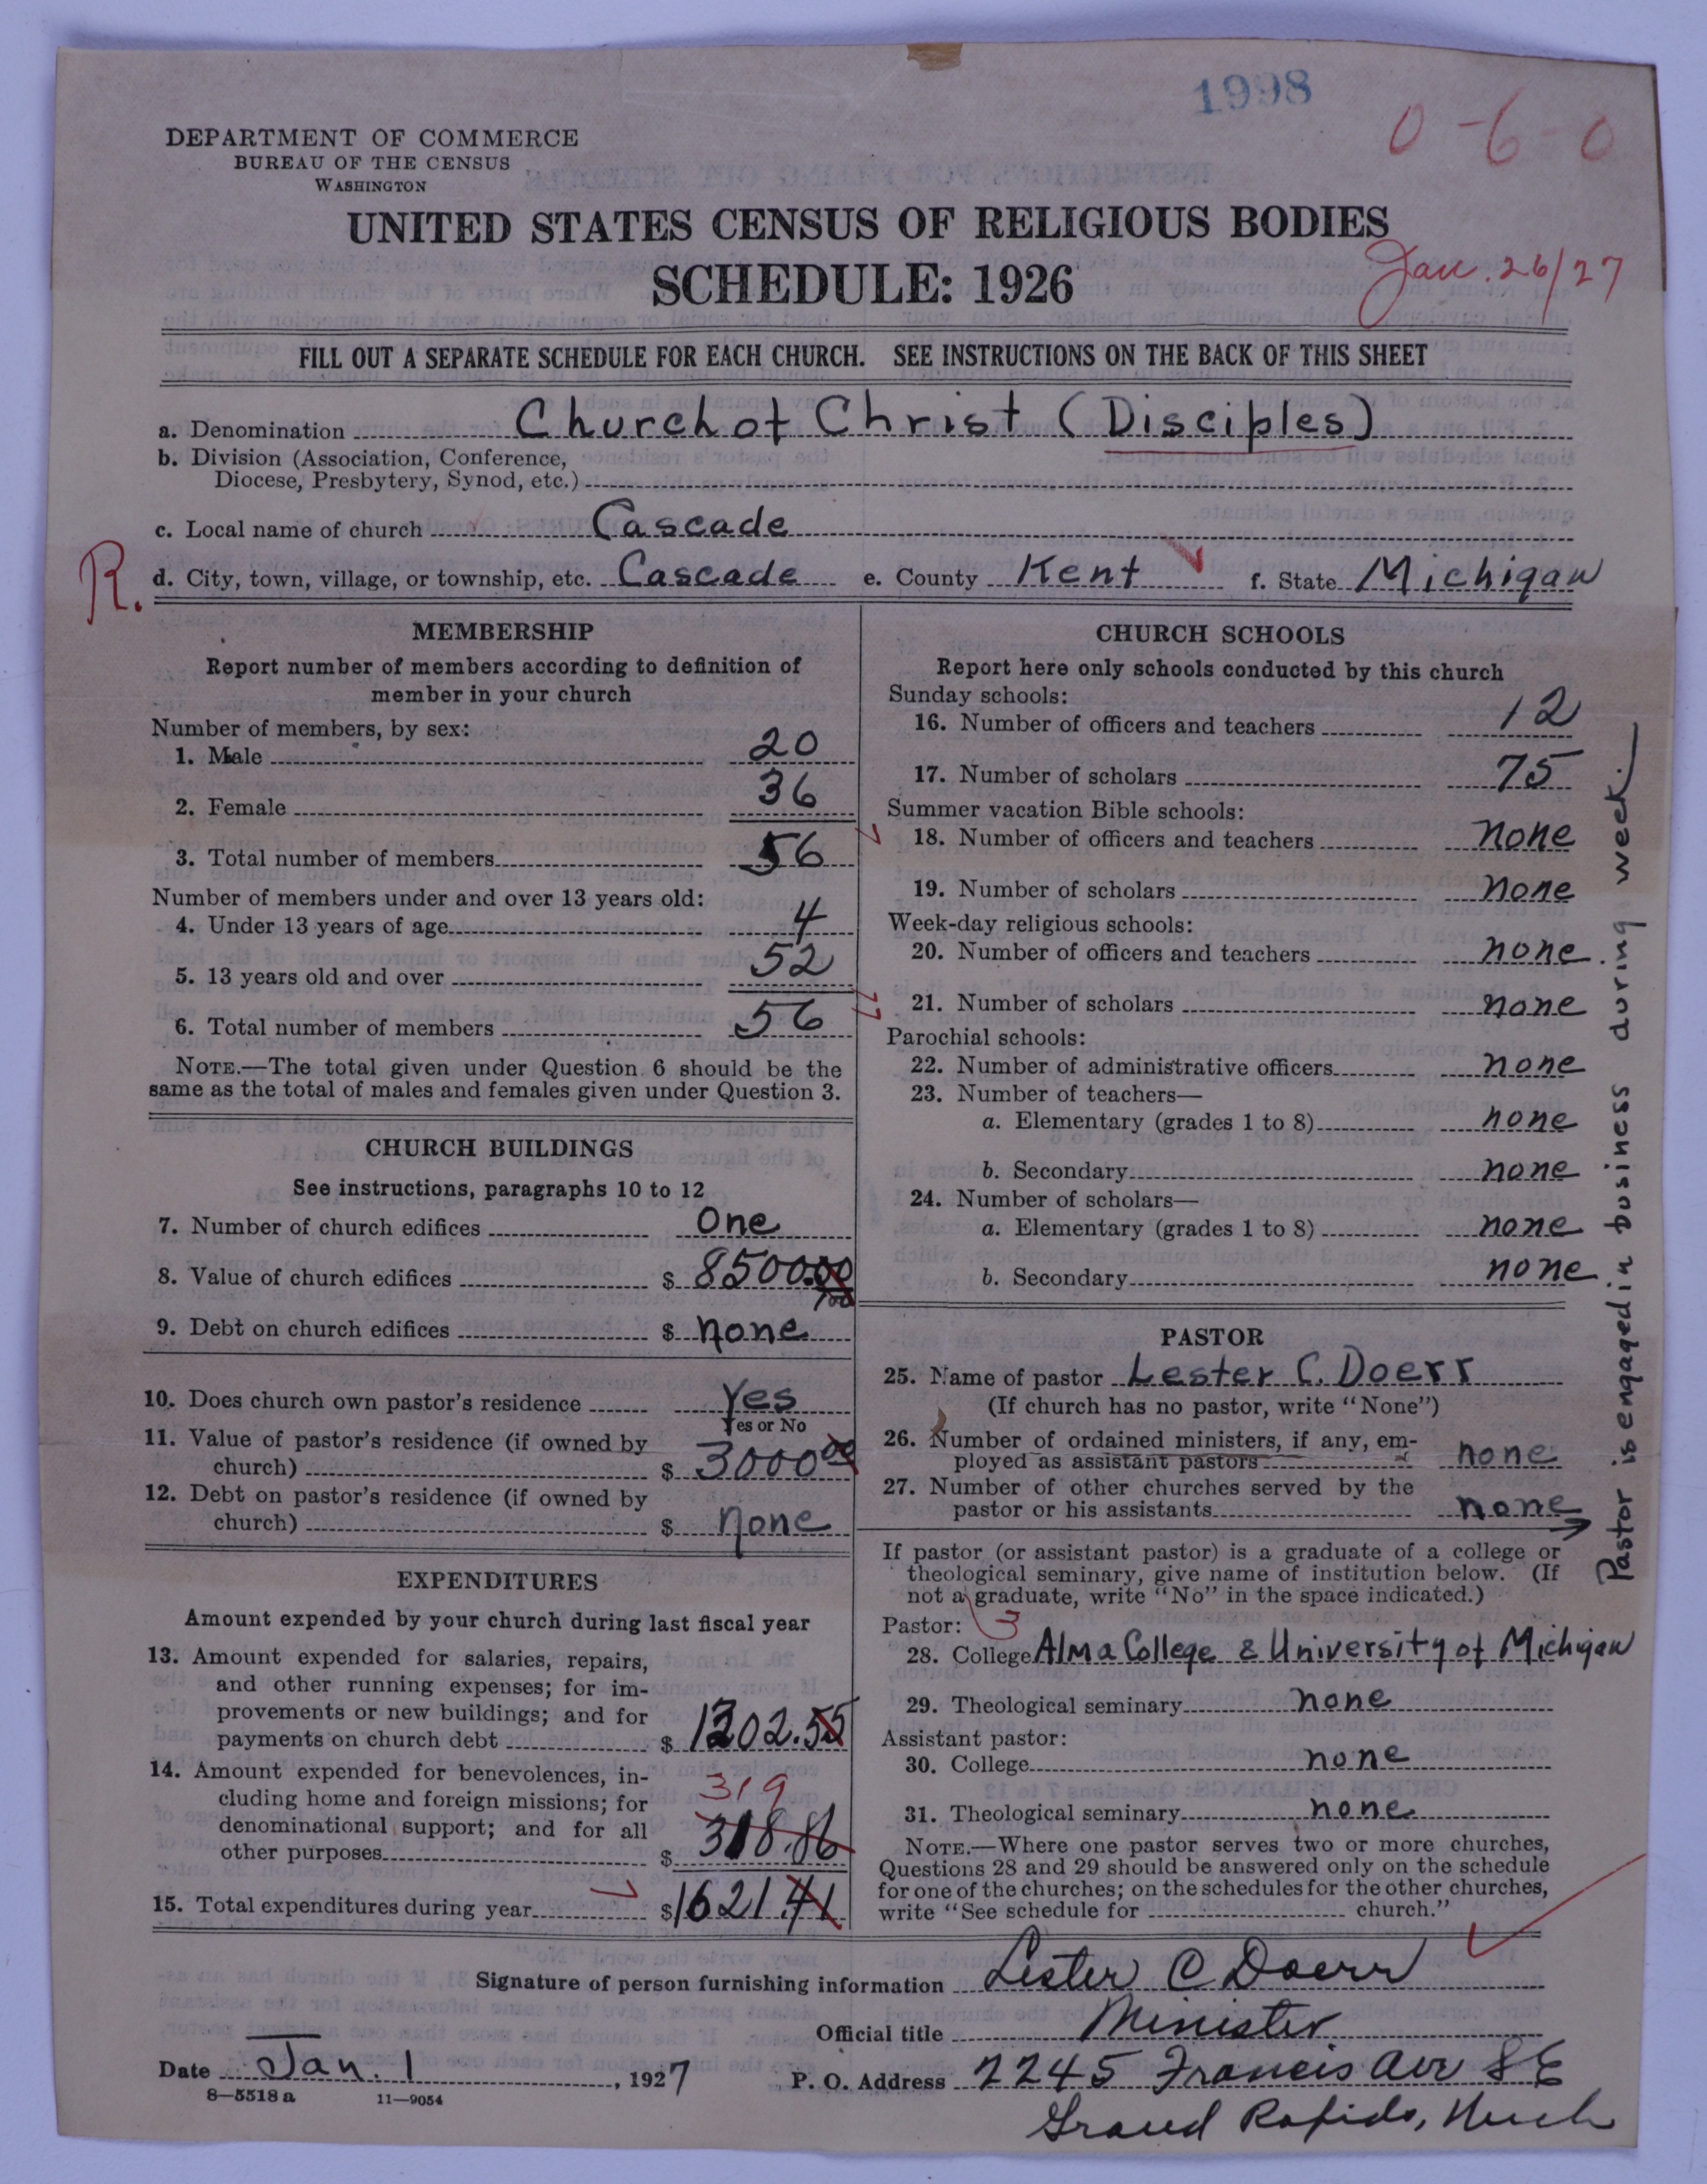 1998
0-6-0
DEPARTMENT OF COMMERCE
BUREAU OF THE CENSUS
WASHINGTON
UNITED STATES CENSUS OF RELIGIOUS BODIES
SCHEDULE: 1926
Jan. 26/27
FILL OUT A SEPARATE SCHEDULE FOR EACH CHURCH. SEE INSTRUCTIONS ON THE BACK OF THIS SHEET
a. Denomination Church of Christ (Disciples)
b. Division (Association, Conference,
Diocese, Presbytery, Synod, etc.)
c. Local name of church Cascade
R.
d. City, town, village, or township, etc. Cascade e. County Kent f. State Michigan
MEMBERSHIP
Report number of members according to definition of
member in your church
Number of members, by sex:
1. Male 20
2. Female 36
3. Total number of members 56
Number of members under and over 13 years old:
4. Under 13 years of age 4
5. 13 years old and over 52
6. Total number of members 56
NOTE.—The total given under Question 6 should be the
same as the total of males and females given under Question 3.
CHURCH BUILDINGS
See instructions, paragraphs 10 to 12
7. Number of church edifices One
8. Value of church edifices $ 8500.00
9. Debt on church edifices $ none
10. Does church own pastor's residence Yes
Yes or No
11. Value of pastor's residence (if owned by
church) $ 3000 00
12. Debt on pastor's residence (if owned by
church) $ none
EXPENDITURES
Amount expended by your church during last fiscal year
13. Amount expended for salaries, repairs,
and other running expenses; for im-
provements or new buildings; and for
payments on church debt $ 1302.55
14. Amount expended for benevolences, in-
cluding home and foreign missions; for
denominational support; and for all
other purposes $ 318.86
319
15. Total expenditures during year $1621.41
CHURCH SCHOOLS
Report here only schools conducted by this church
Sunday schools:
16. Number of officers and teachers 12
17. Number of scholars 75
Summer vacation Bible schools:
18. Number of officers and teachers none
19. Number of scholars none
Week-day religious schools:
20. Number of officers and teachers none.
21. Number of scholars none
Parochial schools:
22. Number of administrative officers none
23. Number of teachers—
a. Elementary (grades 1 to 8) none
b. Secondary none
24. Number of scholars—
a. Elementary (grades 1 to 8) none
b. Secondary none
PASTOR
25. Name of pastor Lester C. Doerr
(If church has no pastor, write "None")
26. Number of ordained ministers, if any, em-
ployed as assistant pastors none
27. Number of other churches served by the
pastor or his assistants none
Pastor is engaged in business during week.
If pastor (or assistant pastor) is a graduate of a college or
theological seminary, give name of institution below. (If
not a graduate, write "No" in the space indicated.)
Pastor: 3
28. College Alma College & University of Michigan
29. Theological seminary none
Assistant pastor:
30. College none
31. Theological seminary none
NOTE.—Where one pastor serves two or more churches,
Questions 28 and 29 should be answered only on the schedule
for one of the churches; on the schedules for the other churches,
write "See schedule for church."
Signature of person furnishing information Lester C Doerr
Official title Minister
Date Jan. 1, 1927 P. O. Address 2245 Francis Ave SE
8—5518 a 11—9054
Grand Rapids, Mich